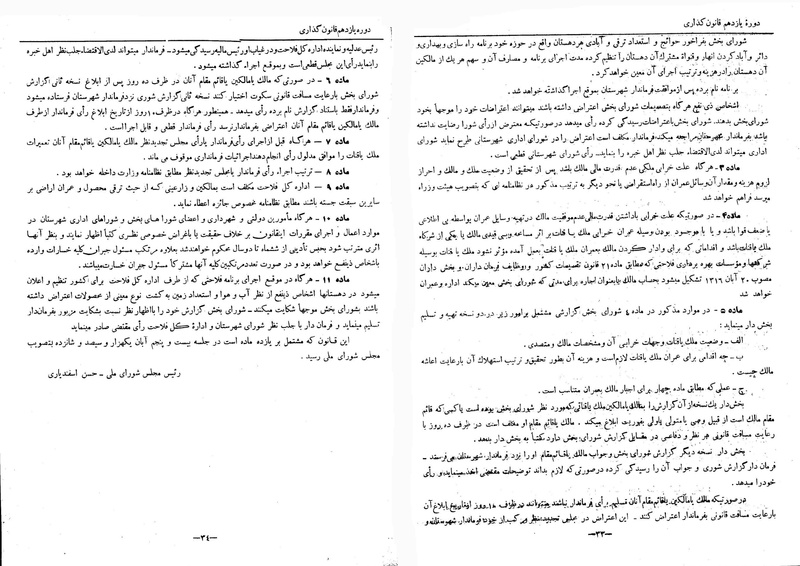 دورهٔ یازدهم قانون گذاری
شورای بخش بفراخور حوائج و استعداد ترقی و آبادی هر دهستان واقع در حوزه خود برنامه راه سازی و بهداری و
دائر و آباد کردن انهار و قنواة مشترک آن دهستان را تنظیم کرده مدت اجرای برنامه و مصارف آن و سهم هر یک از مالکین
آن دهستان را در هزینه و ترتیب اجرای آن معین خواهد کرد.
بر نامه نام برده پس از موافقت فرماندار شهرستان بموقع اجرا گذاشته خواهد شد.
اشخاص ذی نفع هر گاه بتصمیمات شورای بخش اعتراضی داشته باشند میتوانند اعتراضات خود را موجها بخود
شورای بخش بدهند. شورای بخش باعتراضات رسیدگی کرده رأی میدهد در صورتیکه معترض از رأی شورا رضایت نداشته
باشد بفرماندار شهرستان مراجعه میکند، فرماندار مکلف است اعتراض را در شورای اداری شهرستانی طرح نماید شورای
اداری میتواند لدی الاقتضاء جلب نظر اهل خبره را بنماید. رأی شورای شهرستانی قطعی است.
ماده ۳ـ هر گاه علت خرابی ملکی عدم قدرت مالی مالک باشد پس از تحقیق از وضعیت ملک و مالک و احراز
لزوم هزینه و مقدار آن وسائل عمران از راه استقراض یا نحو دیگر به ترتیب مذکور در نظامنامه ای که بتصویب هیئت وزراء
میرسد فراهم خواهد شد
ماده۴ـ در صورتیکه علت خرابی با داشتن قدرت مالی عدم موفقیت مالک در تهیه وسایل عمران بواسطه بی اطلاعی
یا ضعف قوا باشد و یا با موجود بودن وسیله عمران خرابی ملک یا قنات بر اثر مسامحه و بی قیدی مالک یا یکی از شرکاء
ملک یا قنات باشد و اقداماتی که برای وادار کردن مالک بعمران ملک یا قنات بعمل آمده مؤثر نشود ملک یا قنات بوسیله
شرکتها و مؤسسات بهره برداری فلاحتی که مطابق ماده ۲۱ قانون تقسیمات کشور و وظایف فرمانداران و بخش داران
مصوب ۲۰ آبان ۱۳۱۶ تشکیل میشود بحساب مالک یا بعنوان اجاره برای مدتی که شورای بخش معین میکند اداره و عمران
خواهد شد
ماده ۵ ـ در موارد مذکور در ماده ٤ شورای بخش گزارشی مشتمل بر امور زیر در دو نسخه تهیه و تسلیم
بخش دار مینماید :
الف ـ وضعیت ملک یا قنات و جهات خرابی آن و مشخصات مالک و متصدی .
ب ـ چه اقدامی برای عمران ملک یا قنات لازم است و هزینه آن بطور تحقیق و ترتیب استهلاک آن با رعایت اعاشه
مالک چیست .
ج ـ عملی که مطابق ماده چهار برای اجبار مالک بعمران متناسب است .
بخش دار یک نسخه از آن گزارش را بمالک یا مالکین ملک یا قناتی که مورد نظر شورای بخش بوده است یا کسی که قائم
مقام مالک است از قبیل وصی یا متولی یا ولی بفوریت ابلاغ میکند . مالک یا قائم مقام او مکلف است در ظرف ده روز با
رعایت مسافت قانونی هر نظر و دفاعی در مقابل گزارش شورای بخش دارد کتباً به بخش دار بدهد .
بخش دار نسخه دیگر گزارش شورای بخش و جواب مالک یا قائم مقام او را نزد فرماندار شهرستان می فرستد ـ
فرمان دار گزارش شوری و جواب آن را رسیدگی کرده در صورتی که لازم بداند توضیحات مقتضی اخذ مینماید و رأی
خود را میدهد.
در صورتیکه مالک یا مالکین یا قائم مقام آنان تسلیم رأی فرماندار نباشند میتوانند در ظرف ۱۰ روز از تاریخ ابلاغ آن
با رعایت مسافت قانونی بفرماندار اعتراض کنند . این اعتراض در مجلس تجدید نظر مرکب از خود فرماندار شهرستان و
ـ۳۳ـ
دوره یازدهم قانون گذاری
رئیس عدلیه و نماینده اداره کل فلاحت و در غیاب او رئیس مالیه رسیدگی میشود ـ فرماندار میتواند لدی الاقتضاء، جلب نظر اهل خبره
را بنماید رأی این مجلس قطعی است و بموقع اجراء گذاشته میشود .
ماده ٦ ـ در صورتی که مالک یا مالکین یا قائم مقام آنان در ظرف ده روز پس از ابلاغ نسخه ثانی گزارش
شورای بخش با رعایت مسافت قانونی سکوت اختیار کنند نسخه ثانی گزارش شوری نزد فرماندار شهرستان فرستاده میشود
و فرماندار فقط باستناد گزارش نام برده رأی میدهد . همینطور هر گاه در ظرف ۱۰ روز از تاریخ ابلاغ رأی فرماندار از طرف
مالک یا مالکین یا قائم مقام آنان اعتراضی بفرماندار نرسد رأی فرماندار قطعی و قابل اجرا است .
ماده ۷ ـ هر گاه قبل از اجرای رأی فرماندار یا رأی مجلس تجدید نظر مالک یا مالکین یا قائم مقام آنان تعمیرات
ملک یا قنات را موافق مدلول رأی انجام دهند اجرائیات فرمانداری موقوف می ماند .
ماده ۸ ـ ترتیب اجراء رأی فرماندار یا مجلس تجدید نظر مطابق نظامنامه وزارت داخله خواهد بود .
ماده ۹ ـ اداره کل فلاحت مکلف است بمالکین و زارعینی که از حیث ترقی محصول و عمران اراضی بر
سایرین سبقت جسته باشند مطابق نظامنامه مخصوص جائزه اعطاء نماید .
ماده ۱۰ ـ هر گاه مأمورین دولتی و شهرداری و اعضای شورا های بخش و شوراهای اداری شهرستان در
موارد اعمال و اجرای مقررات این قانون بر خلاف حقیقت یا با غراض خصوصی نظری کتباً اظهار نمایند و بنظر آنها
اثری مترتب شود بحبس تأدیبی از ششماه تا دو سال محکوم خواهند شد بعلاوه مرتکب مسئول جبران کلیه خسارات وارده
باشخاص ذینفع خواهد بود و در صورت تعدد مرتکبین کلیه آنها مشترکاً مسئول جبران خسارت میباشند .
ماده ۱۱ ـ هر گاه در موقع اجرای برنامه فلاحتی که از طرف اداره کل فلاحت برای کشور تنظیم و اعلان
میشود در دهستانها اشخاص ذینفع از نظر آب و هوا و استعداد زمین به کشت نوع معینی از محصولات اعتراض داشته
باشند بشورای بخش موجهاً شکایت میکنند ـ شورای بخش گزارش خود را با اظهار نظر نسبت بشکایت مزبور بفرمان دار
تسلیم مینماید و فرمان دار با جلب نظر شورای شهرستان و ادارهٔ کل فلاحت رأی مقتضی صادر مینماید
این قانون که مشتمل بر یازده ماده است در جلسه بیست و پنجم آبان یکهزار و سیصد و شانزده بتصویب
مجلس شورای ملی رسید .
رئیس مجلس شورای ملی ـ حسن اسفندیاری
ـ۳٤ـ